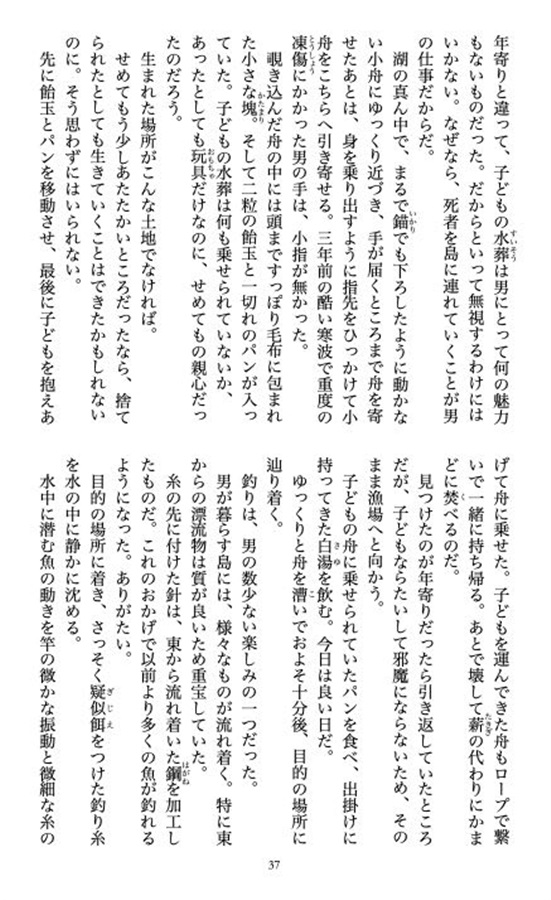 年寄りと違って、子どもの水葬は男にとって何の魅力
もないものだった。だからといって無視するわけには
いかない。なぜなら、死者を島に連れていくことが男
の仕事だからだ。
湖の真ん中で、まるで錨でも下ろしたように動かな
い小舟にゆっくり近づき、手が届くところまで舟を寄
せたあとは、身を乗り出すように指先をひっかけて小
舟をこちらへ引き寄せる。三年前の酷い寒波で重度の
凍傷にかかった男の手は、小指が無かった。
覗き込んだ舟の中には頭まですっぽり毛布に包まれ
た小さな塊。そして二粒の飴玉と一切れのパンが入っ
ていた。子どもの水葬は何も乗せられていないか、
あったとしても玩具だけなのに、せめてもの親心だっ
たのだろう。
生まれた場所がこんな土地でなければ。
せめてもう少しあたたかいところだったなら、捨て
られたとしても生きていくことはできたかもしれない
のに。そう思わずにはいられない。
先に飴玉とパンを移動させ、最後に子どもを抱えあ
げて舟に乗せた。子どもを運んできた舟もロープで繋
いで一緒に持ち帰る。あとで壊して薪の代わりにかま
どに焚べるのだ。
見つけたのが年寄りだったら引き返していたところ
だが、子どもならたいして邪魔にならないため、その
まま漁場へと向かう。
子どもの舟に乗せられていたパンを食べ、出掛けに
持ってきた白湯を飲む。今日は良い日だ。
ゆっくりと舟を漕いでおよそ十分後、目的の場所に
辿り着く。
釣りは、男の数少ない楽しみの一つだった。
男が暮らす島には、様々なものが流れ着く。特に東
からの漂流物は質が良いため重宝していた。
糸の先に付けた針は、東から流れ着いた鋼を加工し
たものだ。これのおかげで以前より多くの魚が釣れる
ようになった。ありがたい。
目的の場所に着き、さっそく疑似餌をつけた釣り糸
を水の中に静かに沈める。
水中に潜む魚の動きを竿の微かな振動と微細な糸の
37